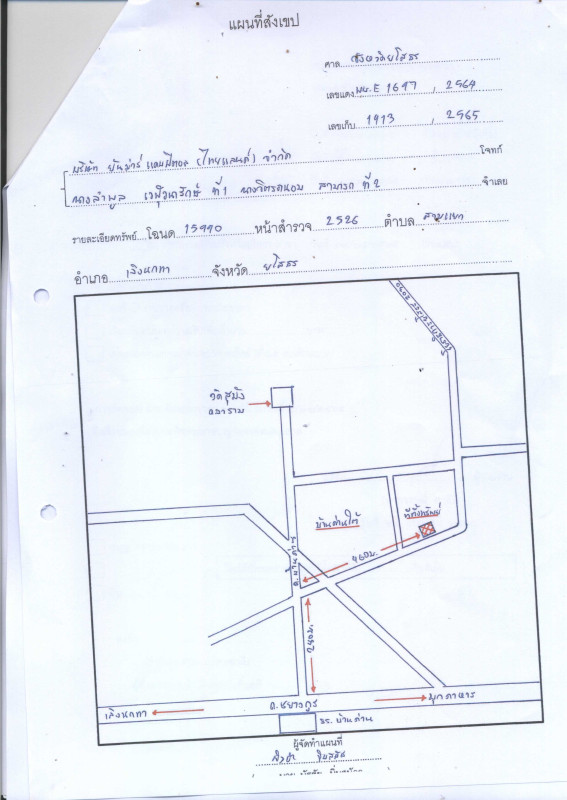 แผนที่สังเขป
ศาล จังหวัดยโสธร
เลขแดง ผบ.E 1647 , 2564
เลขเก็บ 1913 , 2565
บริษัท ยันม่าร์ แคปปิตอล (ไทยแลนด์) จำกัด โจทก์
นางลำพูล ที่ 1 สามารถ ที่ 2 จำเลย
รายละเอียดทรัพย์ โฉนด 15990 หน้าสำรวจ 2526 ตำบล สามแยก
อำเภอ เลิงนกทา จังหวัด ยโสธร
วัดสุมัง
คลาราม
บ้านด่านใต้
ที่ตั้งทรัพย์
460 ม.
ถ.บ้านด่าน
240 ม.
เลิงนกทา
ถ.ชยางกูร
มุกดาหาร
รร.บ้านด่าน
ผู้จัดทำแผนที่